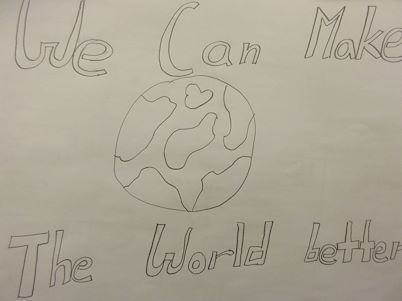 We Can Make
The World better